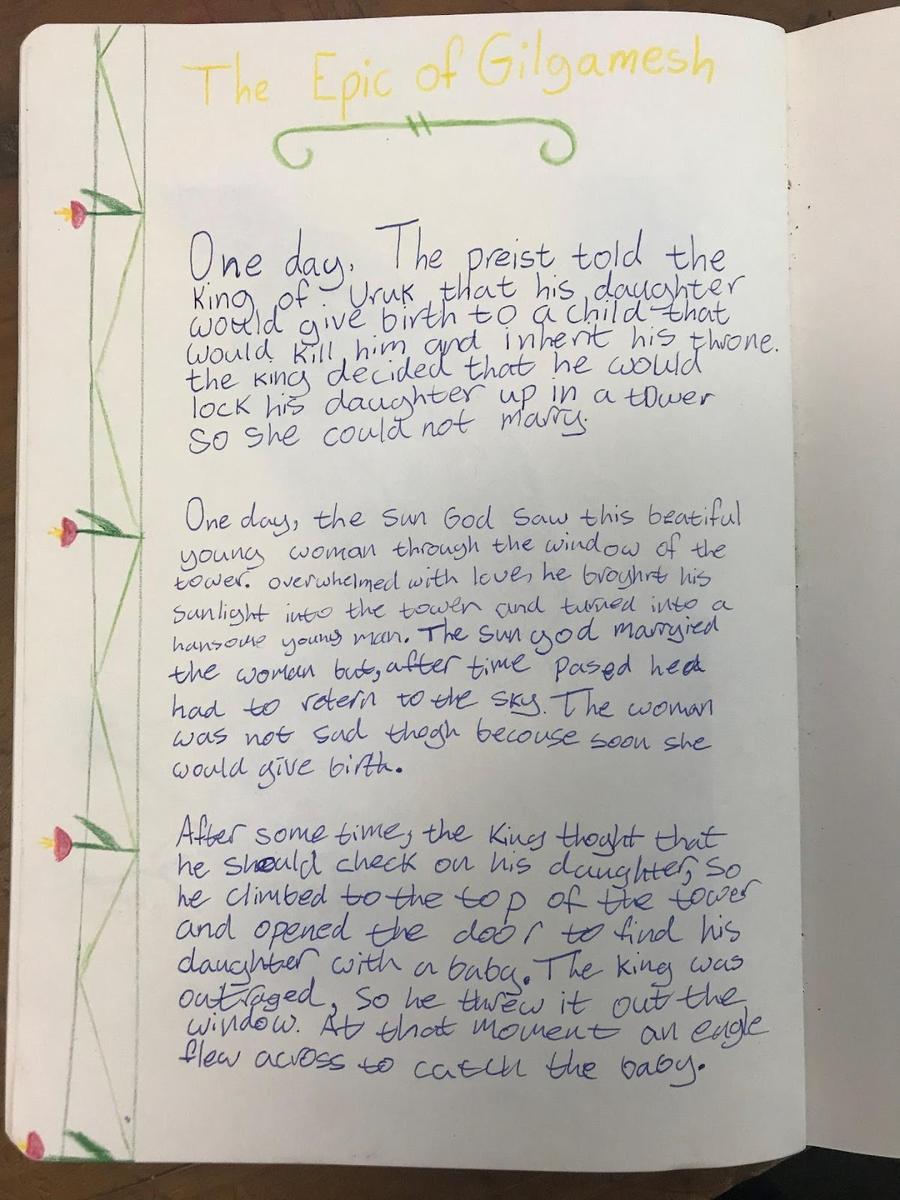 The Epic of Gilgamesh
One day, The preist told the
King of Uruk that his daughter
would give birth to a child that
would kill him and inherit his throne.
the King decided that he would
lock his daughter up in a tower
so she could not marry.
One day, the sun God saw this beatiful
young woman through the window of the
tower. overwhelmed with love, he broyhrt his
sunlight into the tower and turned into a
hansome young man. The sun god marryied
the woman but, after time pased
had to retern to the sky. The woman
was not sad thogh becouse soon she
would give birth.
After some time, the King thoght that
he should check on his daughter, so
he climbed to the top of the tower
and opened the door to find his
daughter with a baby. The king was
outraged, so he threw it out the
window. At that moment an eagle
flew across to catch the baby.